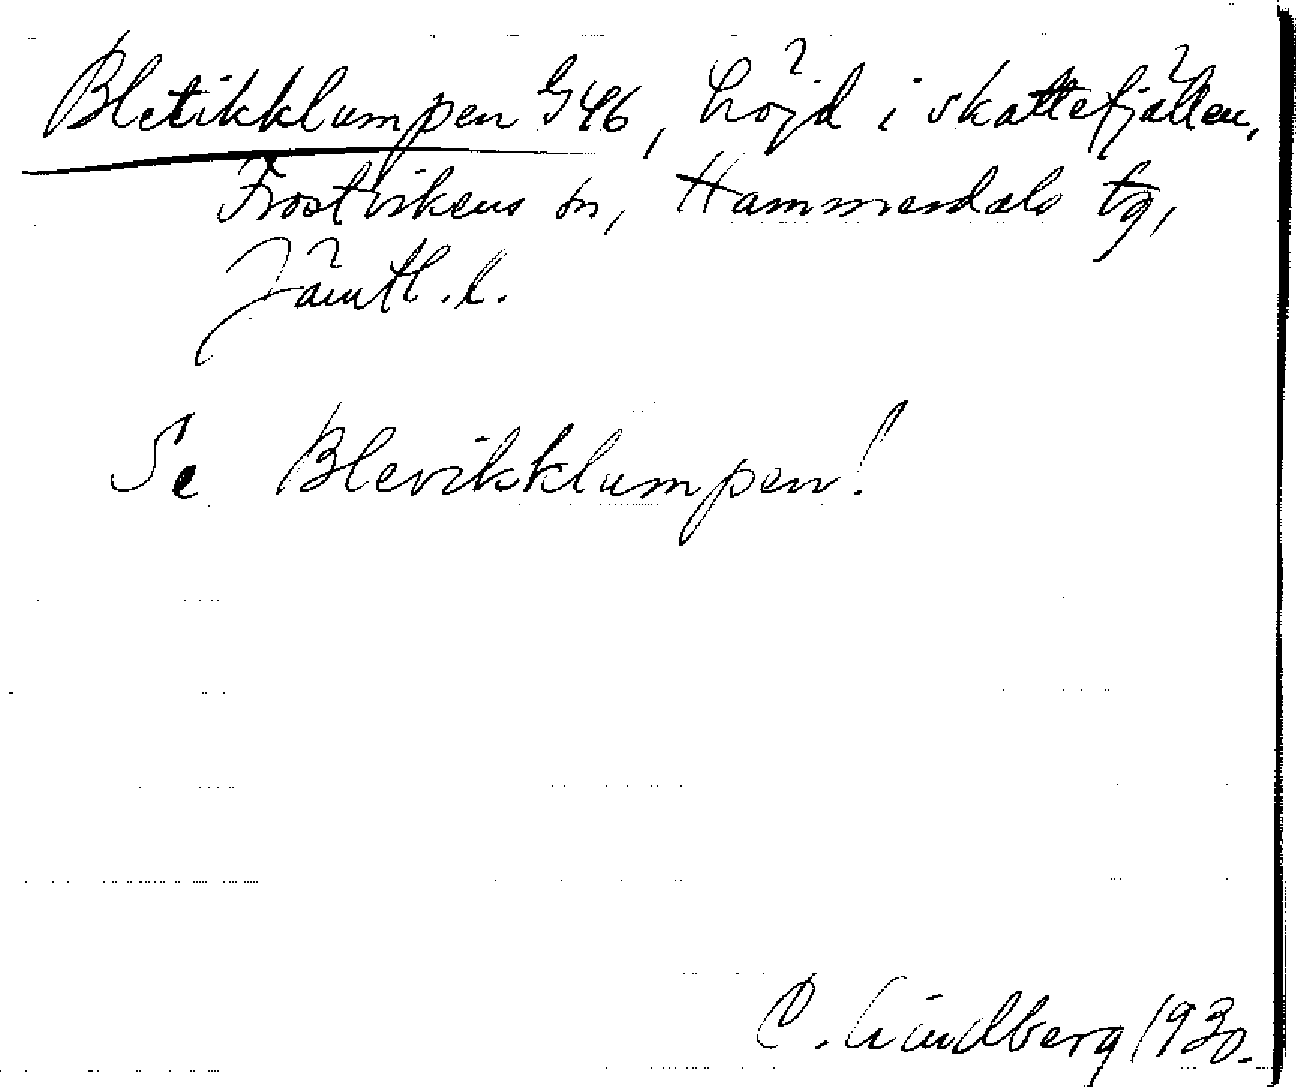 Bletikklumpen G46, höjd i skattefjällen,
Frostvikens sn, Hammerdals tg,
Jämtl. l.
Se Blevikklumpen!
C. Lindberg 1930.